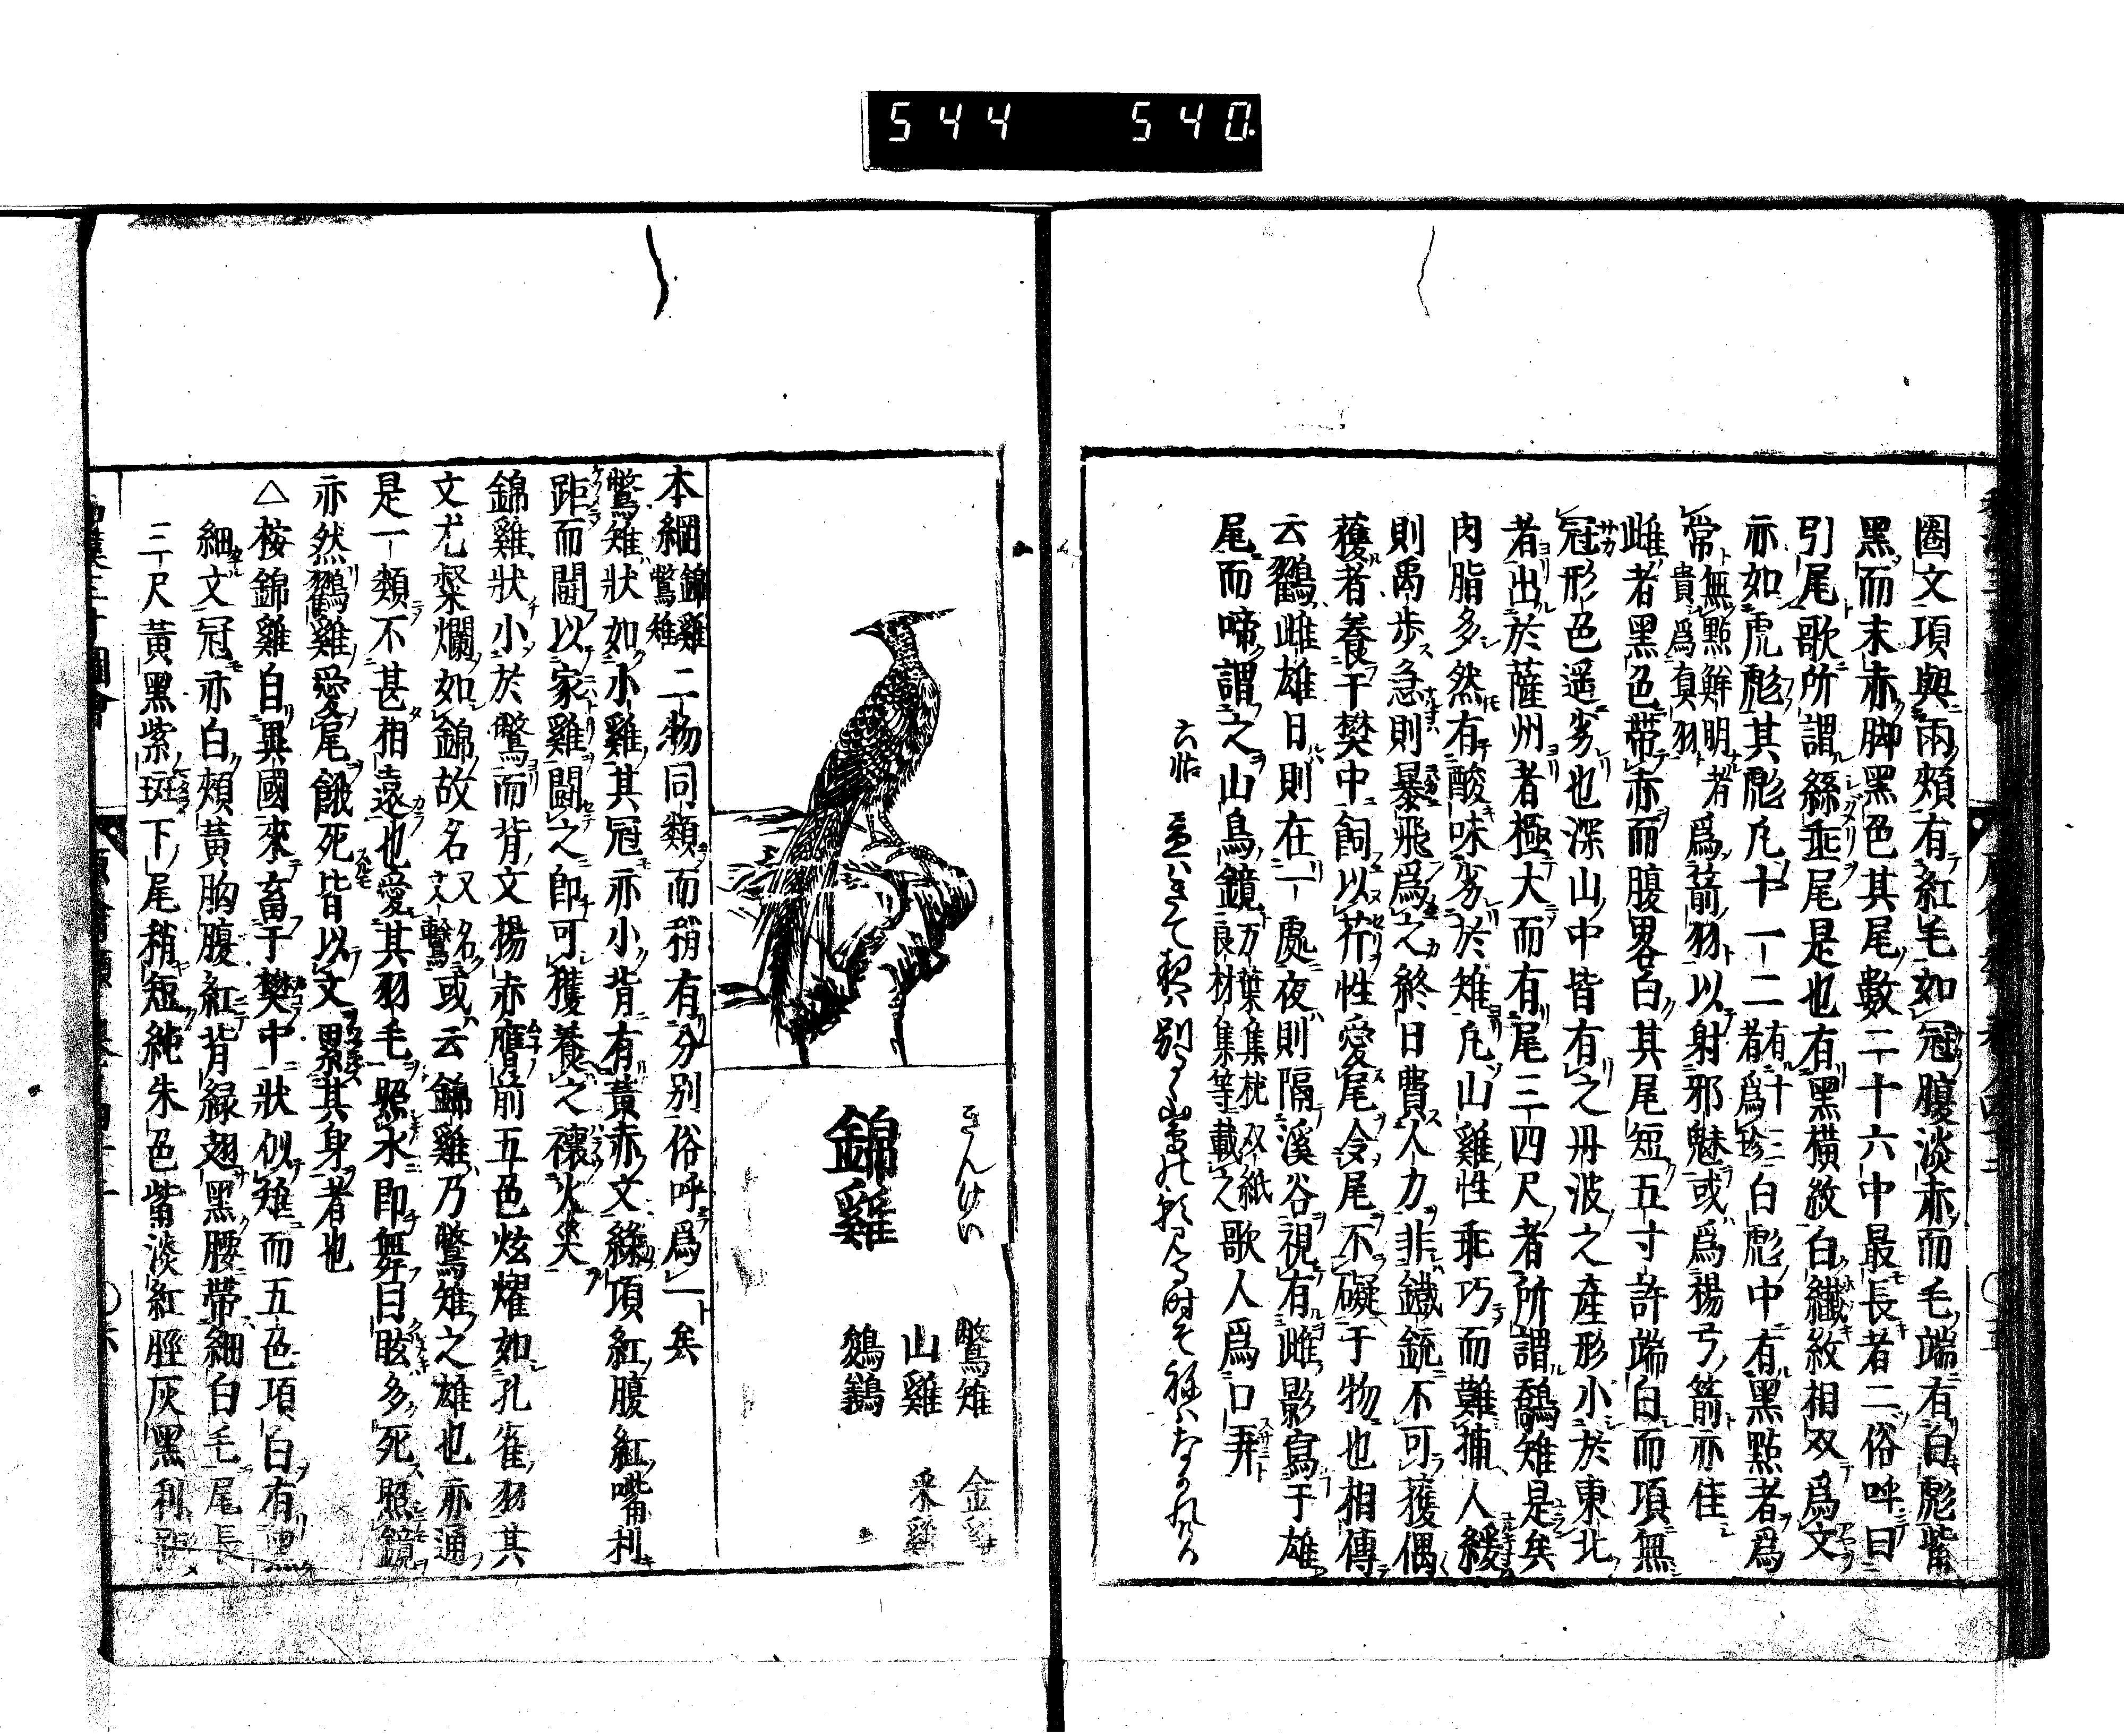 544 540
圈文項與兩頰有紅毛如冠腹淡赤而毛端有白彪觜
黑而末赤脚黑色其尾數二十六中最長者二俗呼曰
引尾歌所謂絲埀尾是也有黑横紋白纎紋相双爲文
亦如虎彪其彪凡十一二有十三者爲珍白彪中有黑點者爲
常無點鮮明者貴爲真羽爲箭羽以射邪魅或爲楊弓箭亦佳
雌者黑色帶赤而腹畧白其尾短五寸許端白而項無
冠形色遥劣也深山中皆有之丹波之產形小於東北
者出於薩州者極大而有尾三四尺者所謂鷮雉是矣
肉脂多然有酸味劣於雉凡山雞性乖巧而難捕人緩
則禹步急則暴飛爲之終日費人力非鐵銃不可獲偶
獲者養于樊中飼以芹性愛尾令尾不礙于物也相傳
云鸐雌雄日則在一處夜則隔溪谷視有雌影寫于雄
尾而啼謂之山鳥鏡万葉集枕双紙良材集等載之歌人爲口弄
六帖
錦雞
きんけい
鷩雉 金雞
山雞 采雞
鵕鸃
本綱錦雞鷩雉二物同類而稍有分别俗呼爲一矣
鷩雉狀如小雞其冠亦小背有黃赤文綠項紅腹紅嘴利
距而鬭以家雞鬭之即可獲養之禳火災
錦雞狀小於鷩而背文揚赤膺前五色炫耀如孔雀羽其
文尤粲爛如錦故名又名鷩或云錦雞乃鷩雉之雄也亦通
是一類不甚相遠也愛其羽毛照水即舞目眩多死照鏡
亦然鸐雞愛尾餓死皆以文累其身者也
△桉錦雞自異國來畜于樊中狀似雉而五色項白有黑
細文冠亦白頰黃胸腹紅背緑翅黑腰帶細白毛尾長
三尺黃黑紫斑下尾稍短純朱色觜淡紅脛灰黑利距